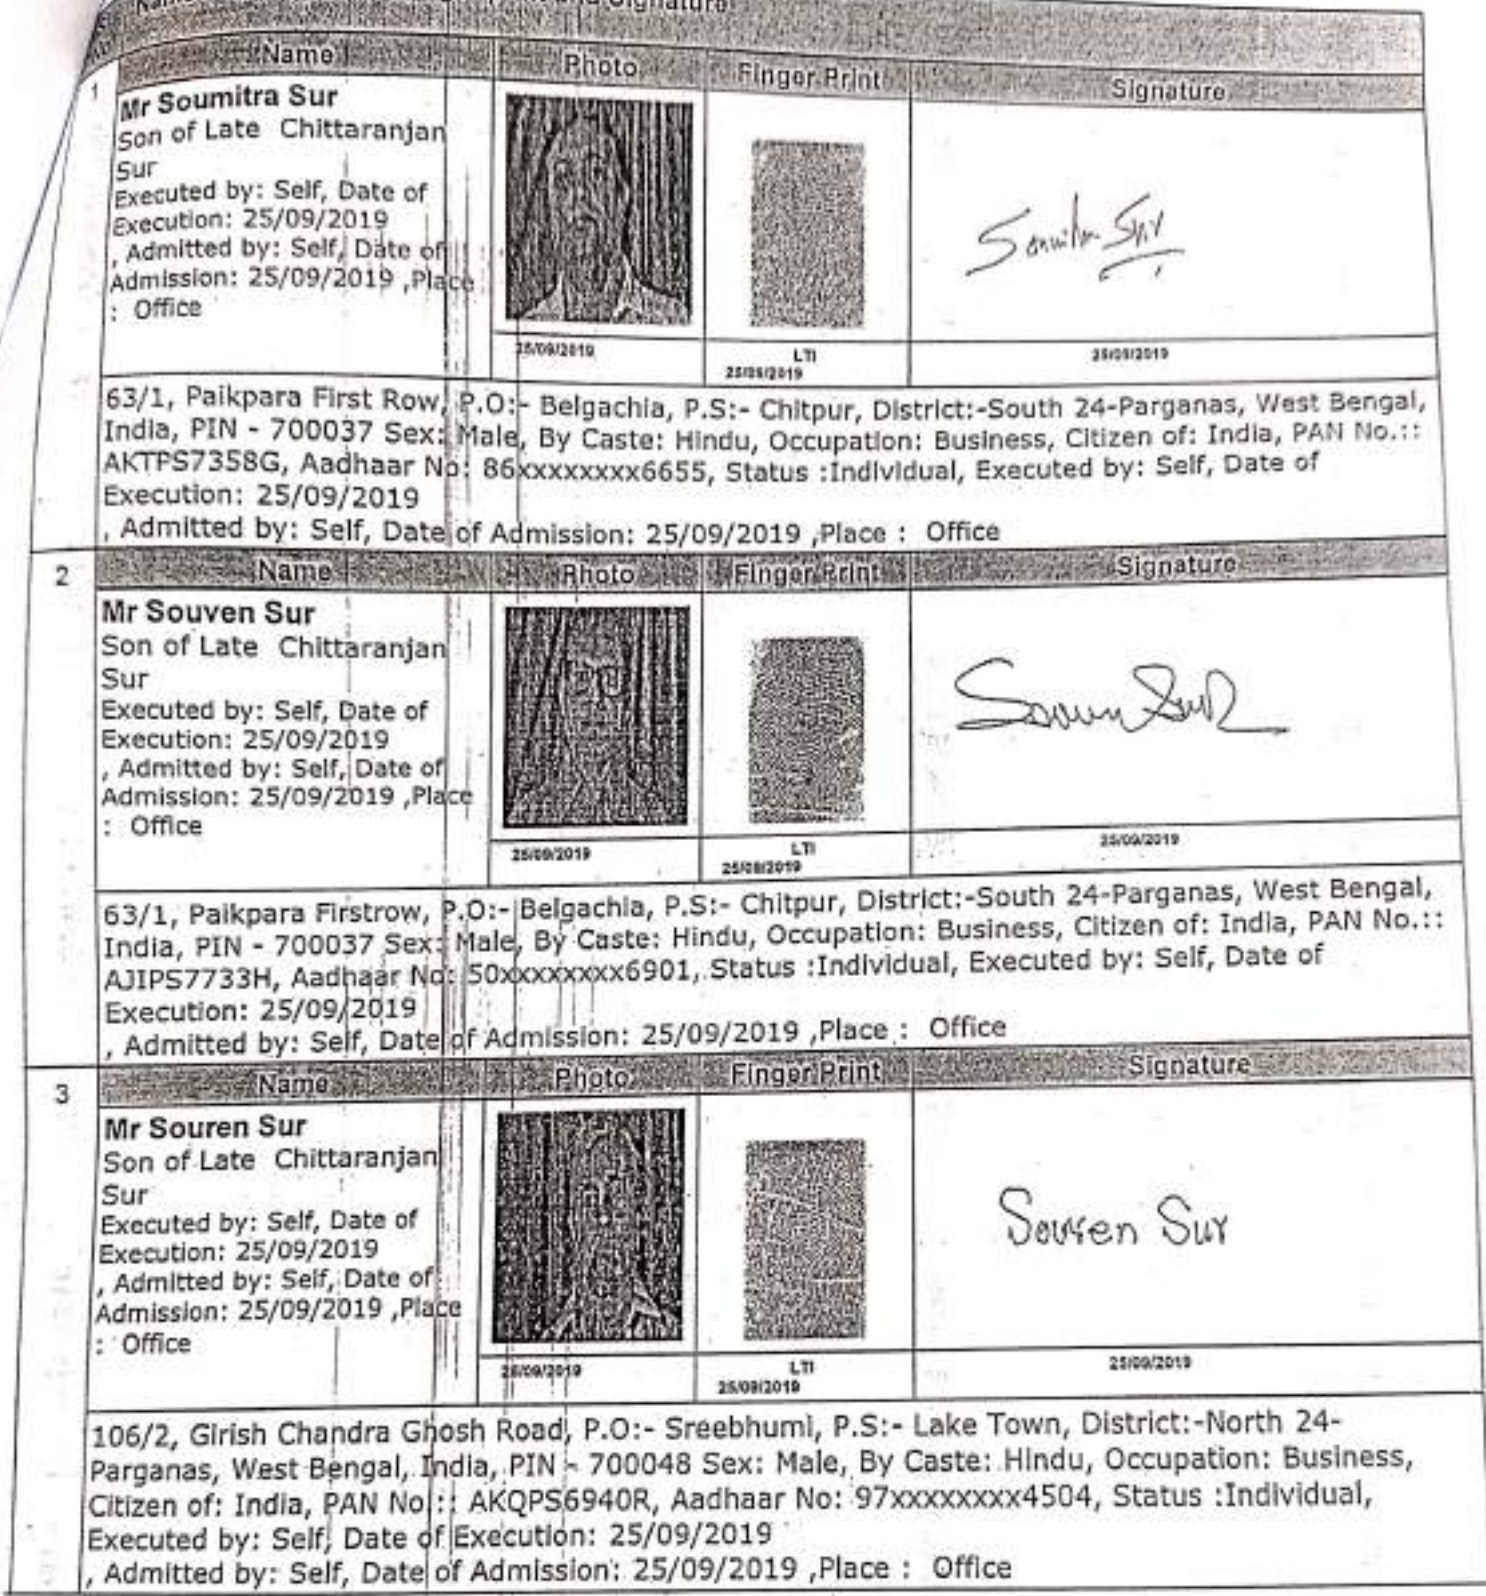 and Signature
Name Photo Finger Print Signature
1
Mr Soumitra Sur
Son of Late Chittaranjan
Sur
Executed by: Self, Date of
Execution: 25/09/2019
, Admitted by: Self, Date of
Admission: 25/09/2019 ,Place
: Office
Soumitra Sur
25/09/2019 LTI 25/09/2019
25/09/2019
63/1, Paikpara First Row, P.O:- Belgachia, P.S:- Chitpur, District:-South 24-Parganas, West Bengal,
India, PIN - 700037 Sex: Male, By Caste: Hindu, Occupation: Business, Citizen of: India, PAN No.::
AKTPS7358G, Aadhaar No: 86xxxxxxxx6655, Status :Individual, Executed by: Self, Date of
Execution: 25/09/2019
, Admitted by: Self, Date of Admission: 25/09/2019 ,Place : Office
2 Name Photo Finger Print Signature
Mr Souven Sur
Son of Late Chittaranjan
Sur
Executed by: Self, Date of
Execution: 25/09/2019
, Admitted by: Self, Date of
Admission: 25/09/2019 ,Place
: Office
Souven Sur
25/09/2019 LTI 25/09/2019
25/09/2019
63/1, Paikpara Firstrow, P.O:- Belgachia, P.S:- Chitpur, District:-South 24-Parganas, West Bengal,
India, PIN - 700037 Sex: Male, By Caste: Hindu, Occupation: Business, Citizen of: India, PAN No.::
AJIPS7733H, Aadhaar No: 50xxxxxxxx6901, Status :Individual, Executed by: Self, Date of
Execution: 25/09/2019
, Admitted by: Self, Date of Admission: 25/09/2019 ,Place : Office
3 Name Photo Finger Print Signature
Mr Souren Sur
Son of Late Chittaranjan
Sur
Executed by: Self, Date of
Execution: 25/09/2019
, Admitted by: Self, Date of
Admission: 25/09/2019 ,Place
: Office
Souren Sur
25/09/2019 LTI 25/09/2019
25/09/2019
106/2, Girish Chandra Ghosh Road, P.O:- Sreebhumi, P.S:- Lake Town, District:-North 24-
Parganas, West Bengal, India, PIN - 700048 Sex: Male, By Caste: Hindu, Occupation: Business,
Citizen of: India, PAN No.:: AKQPS6940R, Aadhaar No: 97xxxxxxxx4504, Status :Individual,
Executed by: Self, Date of Execution: 25/09/2019
, Admitted by: Self, Date of Admission: 25/09/2019 ,Place : Office